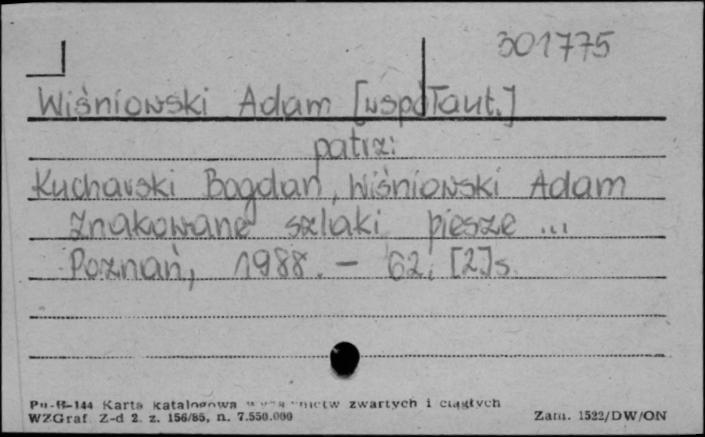 301775
Wiśniowski Adam [współaut.]
patrz:
Kucharski Bogdan, Wiśniowski Adam
Znakowane szlaki piesze ...
Poznań, 1988. - 62, [2] s.
Pu-B-144 Karta katalogowa zwartych i ciągłych
WZGraf Z-d 2. z. 156/85, n. 7.550.000
Zam. 1522/DW/ON